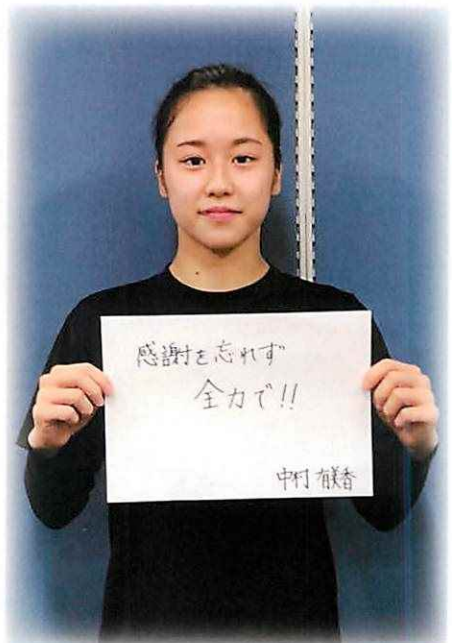 感謝を忘れず
全力で!!
中村 有美香